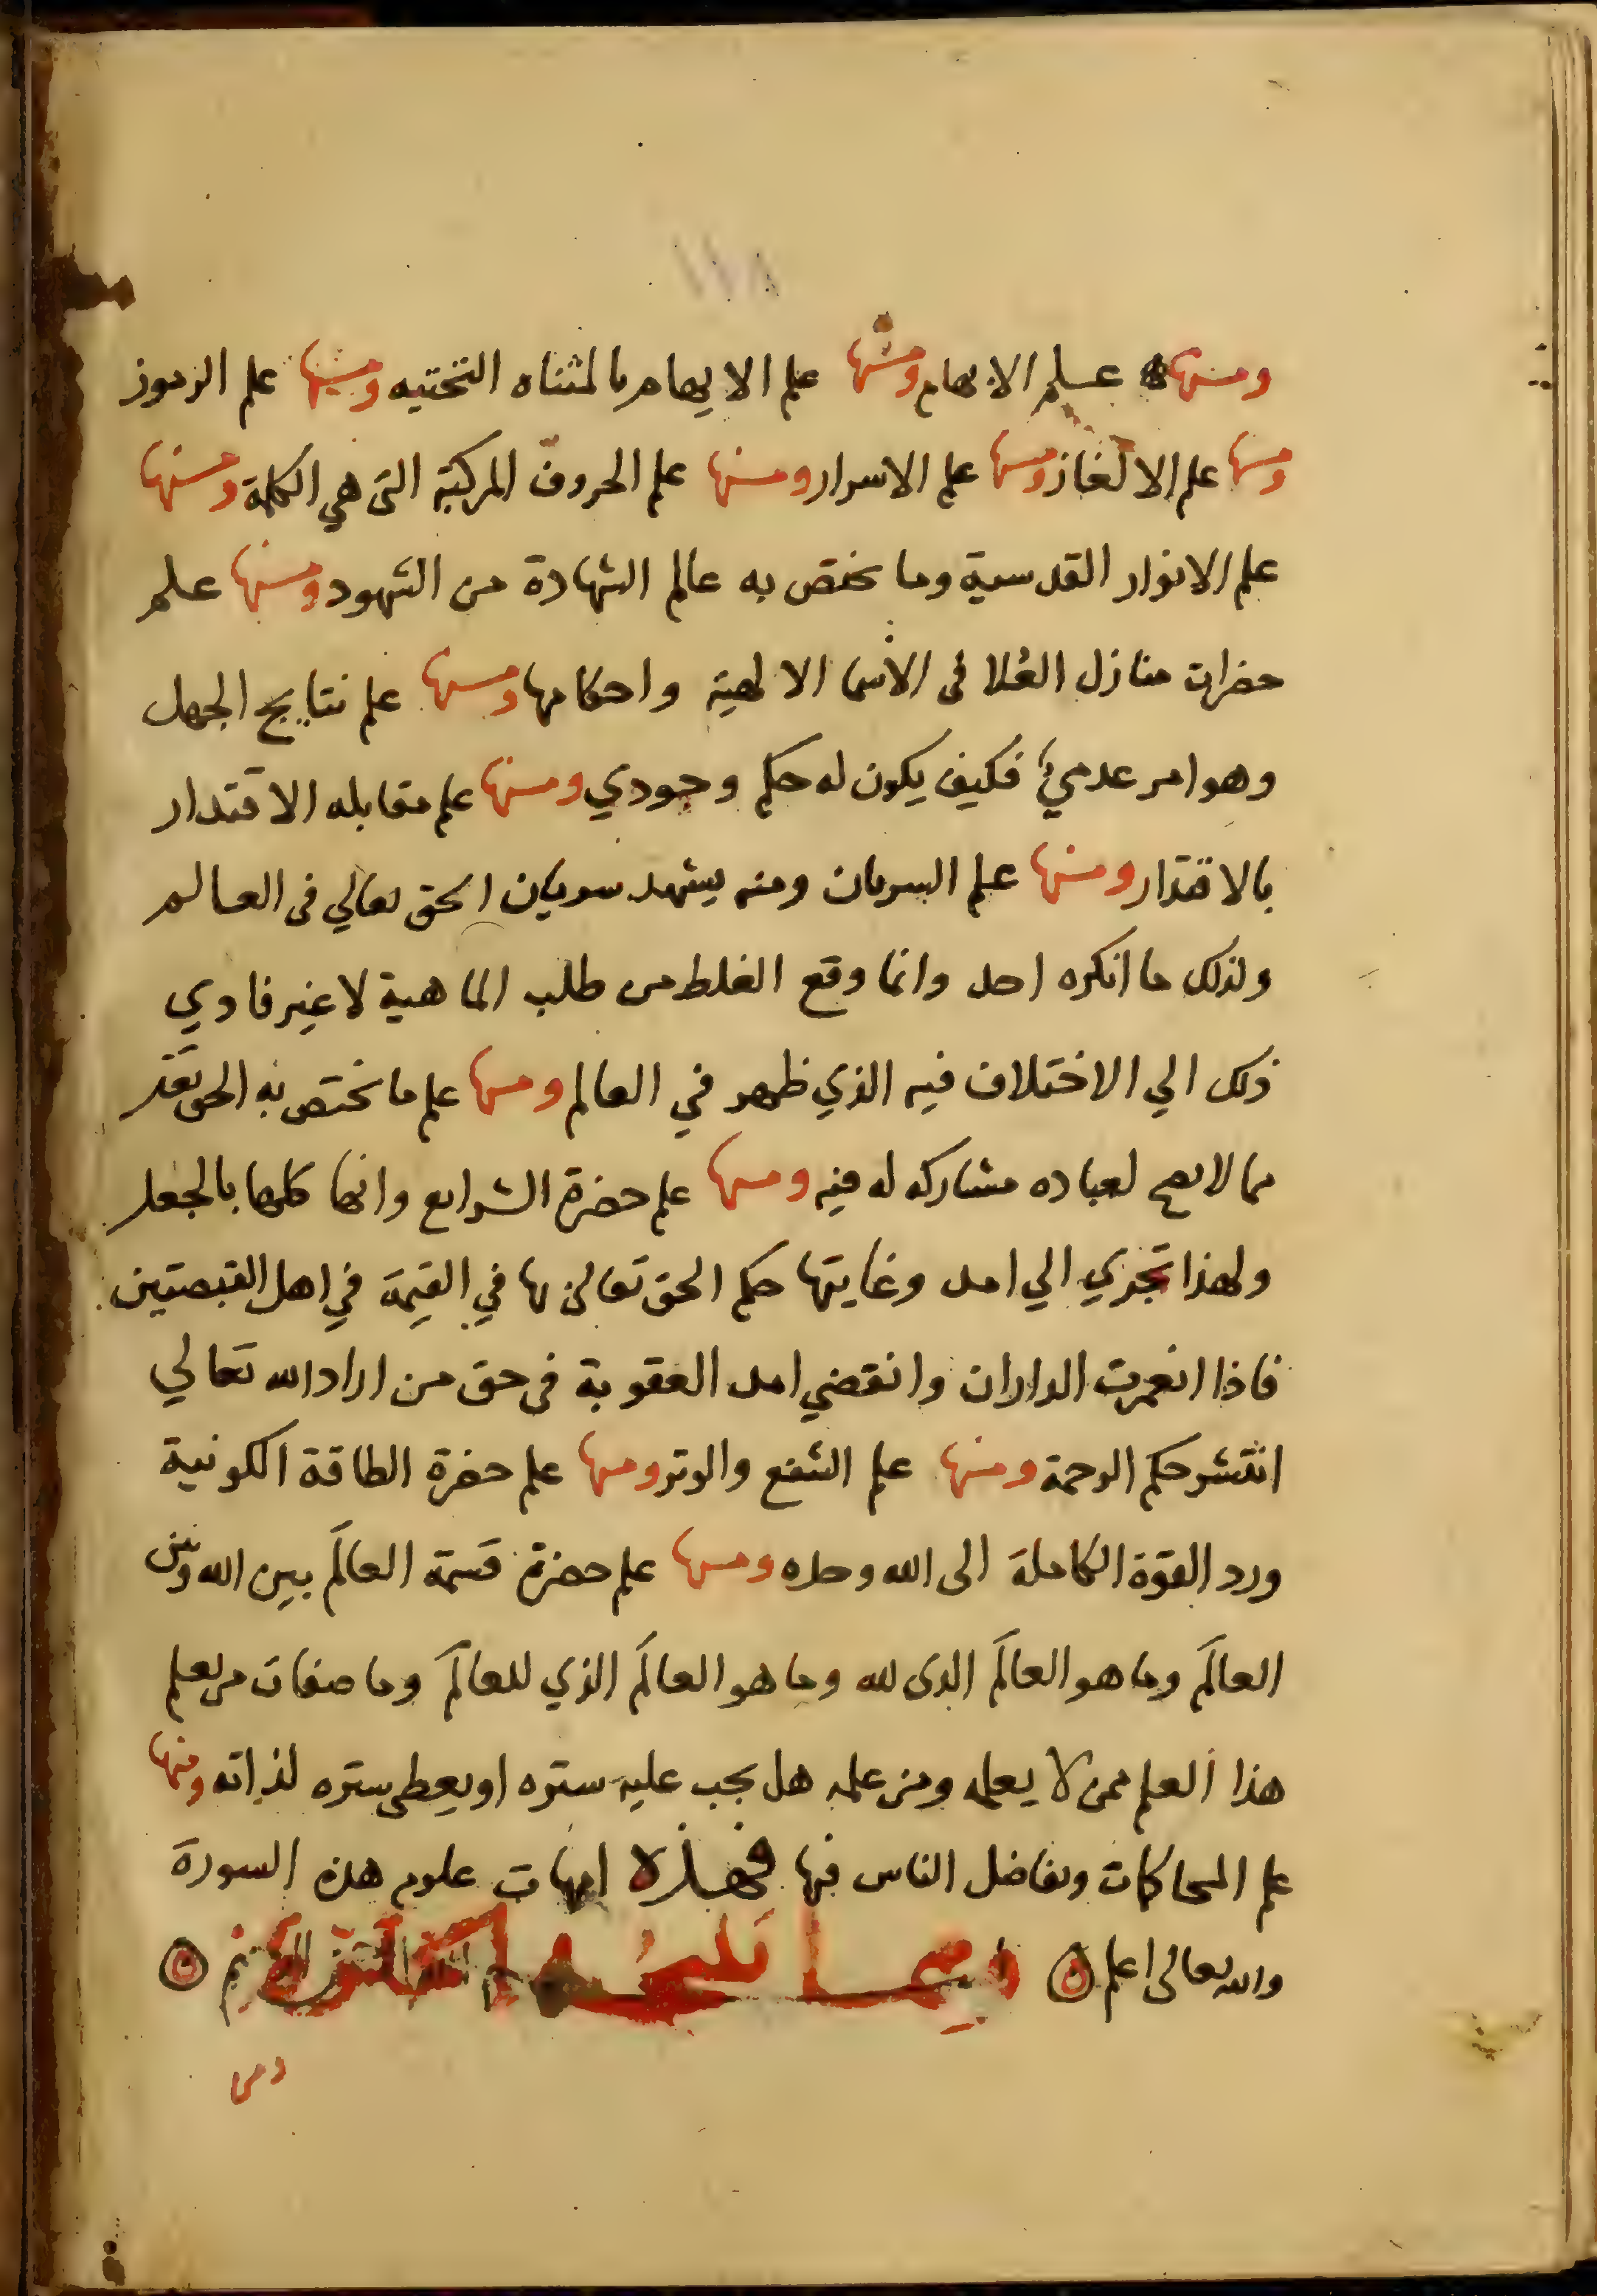 ومنها علم الابهام ومنها علم الايهام بالمثناه التحتيه ومنها علم الرموز
ومنها علم الالغاز ومنها علم الاسرار ومنها علم الحروف المركبة التى هي الكلمة ومنها
علم الانوار القدسية وما يختص به عالم الشهادة من الشهود ومنها علم
حضرات منازل العُلا فى الأسما الالهية واحكامها ومنها علم نتايج الجهل
وهو امر عدميٌ فكيف يكون له حكم وجودي ومنها علم مقابله الاقتدار
بالاقتدار ومنها علم السريان ومنه يشهد سريان الحق تعالي فى العالم
ولذلك ما انكره احد وانما وقع الغلط من طلب الماهية لا غير فادي
ذلك الي الاختلاف فيه الذي ظهر في العالم ومنها علم ما يختص به الحق
مما لا يصح لعباده مشاركه له فيه ومنها علم حضرة الشرايع وانها كلها بالجعل
ولهذا تجري الي امد وغايتها حكم الحق تعالى بها في القيمة في اهل القبضتين
فاذا انعمرت الداران وانقضي امد العقوبة فى حق من اراد الله تعالي
انتشر حكم الرحمة ومنها علم الشفع والوتر ومنها علم حضرة الطاقة الكونية
ورد القوة الكاملة الى الله وحده ومنها علم حضرة قسمة العالَم بين الله وبين
العالَم وما هو العالَم الذى لله وما هو العالَم الذي للعالَم وما صفات من يعلم
هذا العلم ممن لا يعلمه ومن علمه هل يجب عليه ستره او يعطى ستره لذاته ومنها
علم المحاكات وتفاضل الناس فيها فهذه امهات علوم هذه السورة
والله تعالى اعلم
ومن